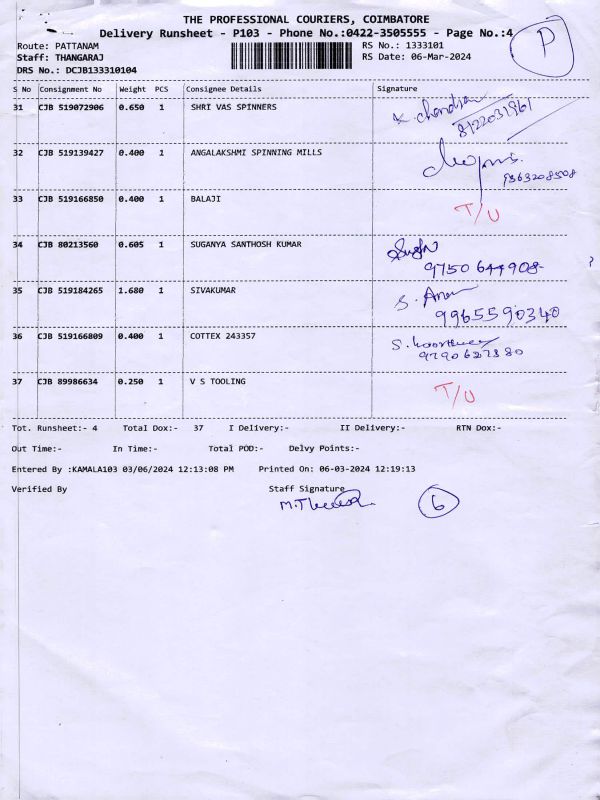 THE PROFESSIONAL COURIERS, COIMBATORE
Delivery Runsheet - P103 - Phone No.:0422-3505555 - Page No.:4
P
Route: PATTANAM RS No.: 1333101
Staff: THANGARAJ RS Date: 06-Mar-2024
DRS No.: DCJB133310104
S No Consignment No Weight PCS Consignee Details Signature
31 CJB 519072906 0.650 1 SHRI VAS SPINNERS K. Chandran
8122031961
32 CJB 519139427 0.400 1 ANGALAKSHMI SPINNING MILLS
9363208508
33 CJB 519166850 0.400 1 BALAJI T/U
34 CJB 80213560 0.605 1 SUGANYA SANTHOSH KUMAR
9750644908
35 CJB 519184265 1.680 1 SIVAKUMAR S. Anan
9965590340
36 CJB 519166809 0.400 1 COTTEX 243357
9790627380
37 CJB 89986634 0.250 1 V S TOOLING T/U
Tot. Runsheet:- 4 Total Dox:- 37 I Delivery:- II Delivery:- RTN Dox:-
Out Time:- In Time:- Total POD:- Delvy Points:-
Entered By :KAMALA103 03/06/2024 12:13:08 PM Printed On: 06-03-2024 12:19:13
Verified By Staff Signature
6